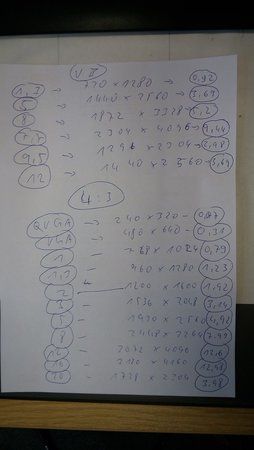 720 x 1280 → 0,92
1,3 → 1440 x 2560 → 3,69
5 → 1872 x 3328 → 6,2
8 → 2304 x 4096 → 9,44
7,7 → 1296 x 2304 → 3,98
9,5 → 1440 x 2560 → 3,69
12 →
4:3
QVGA → 240 x 320 - 0,07
VGA → 480 x 640 - 0,31
1 - 768 x 1024 0,79
1,3 - 960 x 1280 1,23
2 - 1200 x 1600 1,92
3 - 1536 x 2048 3,14
5 - 1920 x 2560 4,92
8 - 2448 x 3264 7,99
- 3072 x 4096
- 3120 x 4160 12,98
- 1728 x 2304 3,98